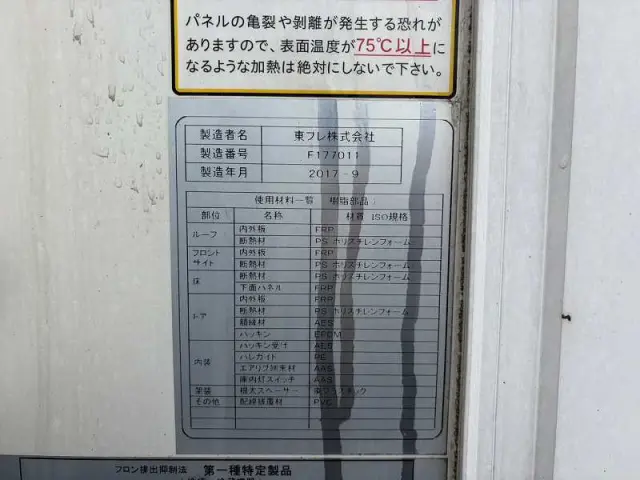 パネルの亀裂や剥離が発生する恐れが
ありますので、表面温度が75℃以上に
なるような加熱は絶対にしないで下さい。
製造者名 東フレ株式会社
製造番号 F177011
製造年月 2017-9
使用材料一覧 樹脂部品
部位 名称 材質 ISO規格
ルーフ 内外板 FRP
断熱材 PS ポリスチレンフォーム
フロント サイド 内外板 FRP
断熱材 PS ポリスチレンフォーム
床 断熱材 PS ポリスチレンフォーム
下面パネル FRP
ドア 内外板 FRP
断熱材 PS ポリスチレンフォーム
額縁材 AES
パッキン EPDM
内装 パッキン受け AES
パレガイド PE
エアリブ端末材 AAS
庫内灯スイッチ AAS
架装 根太スペーサー
その他 配線保護材 PVC
フロン排出抑制法 第一種特定製品